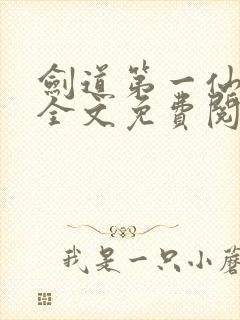 劍道第一仙
全文免費閱
我是一只小蘑